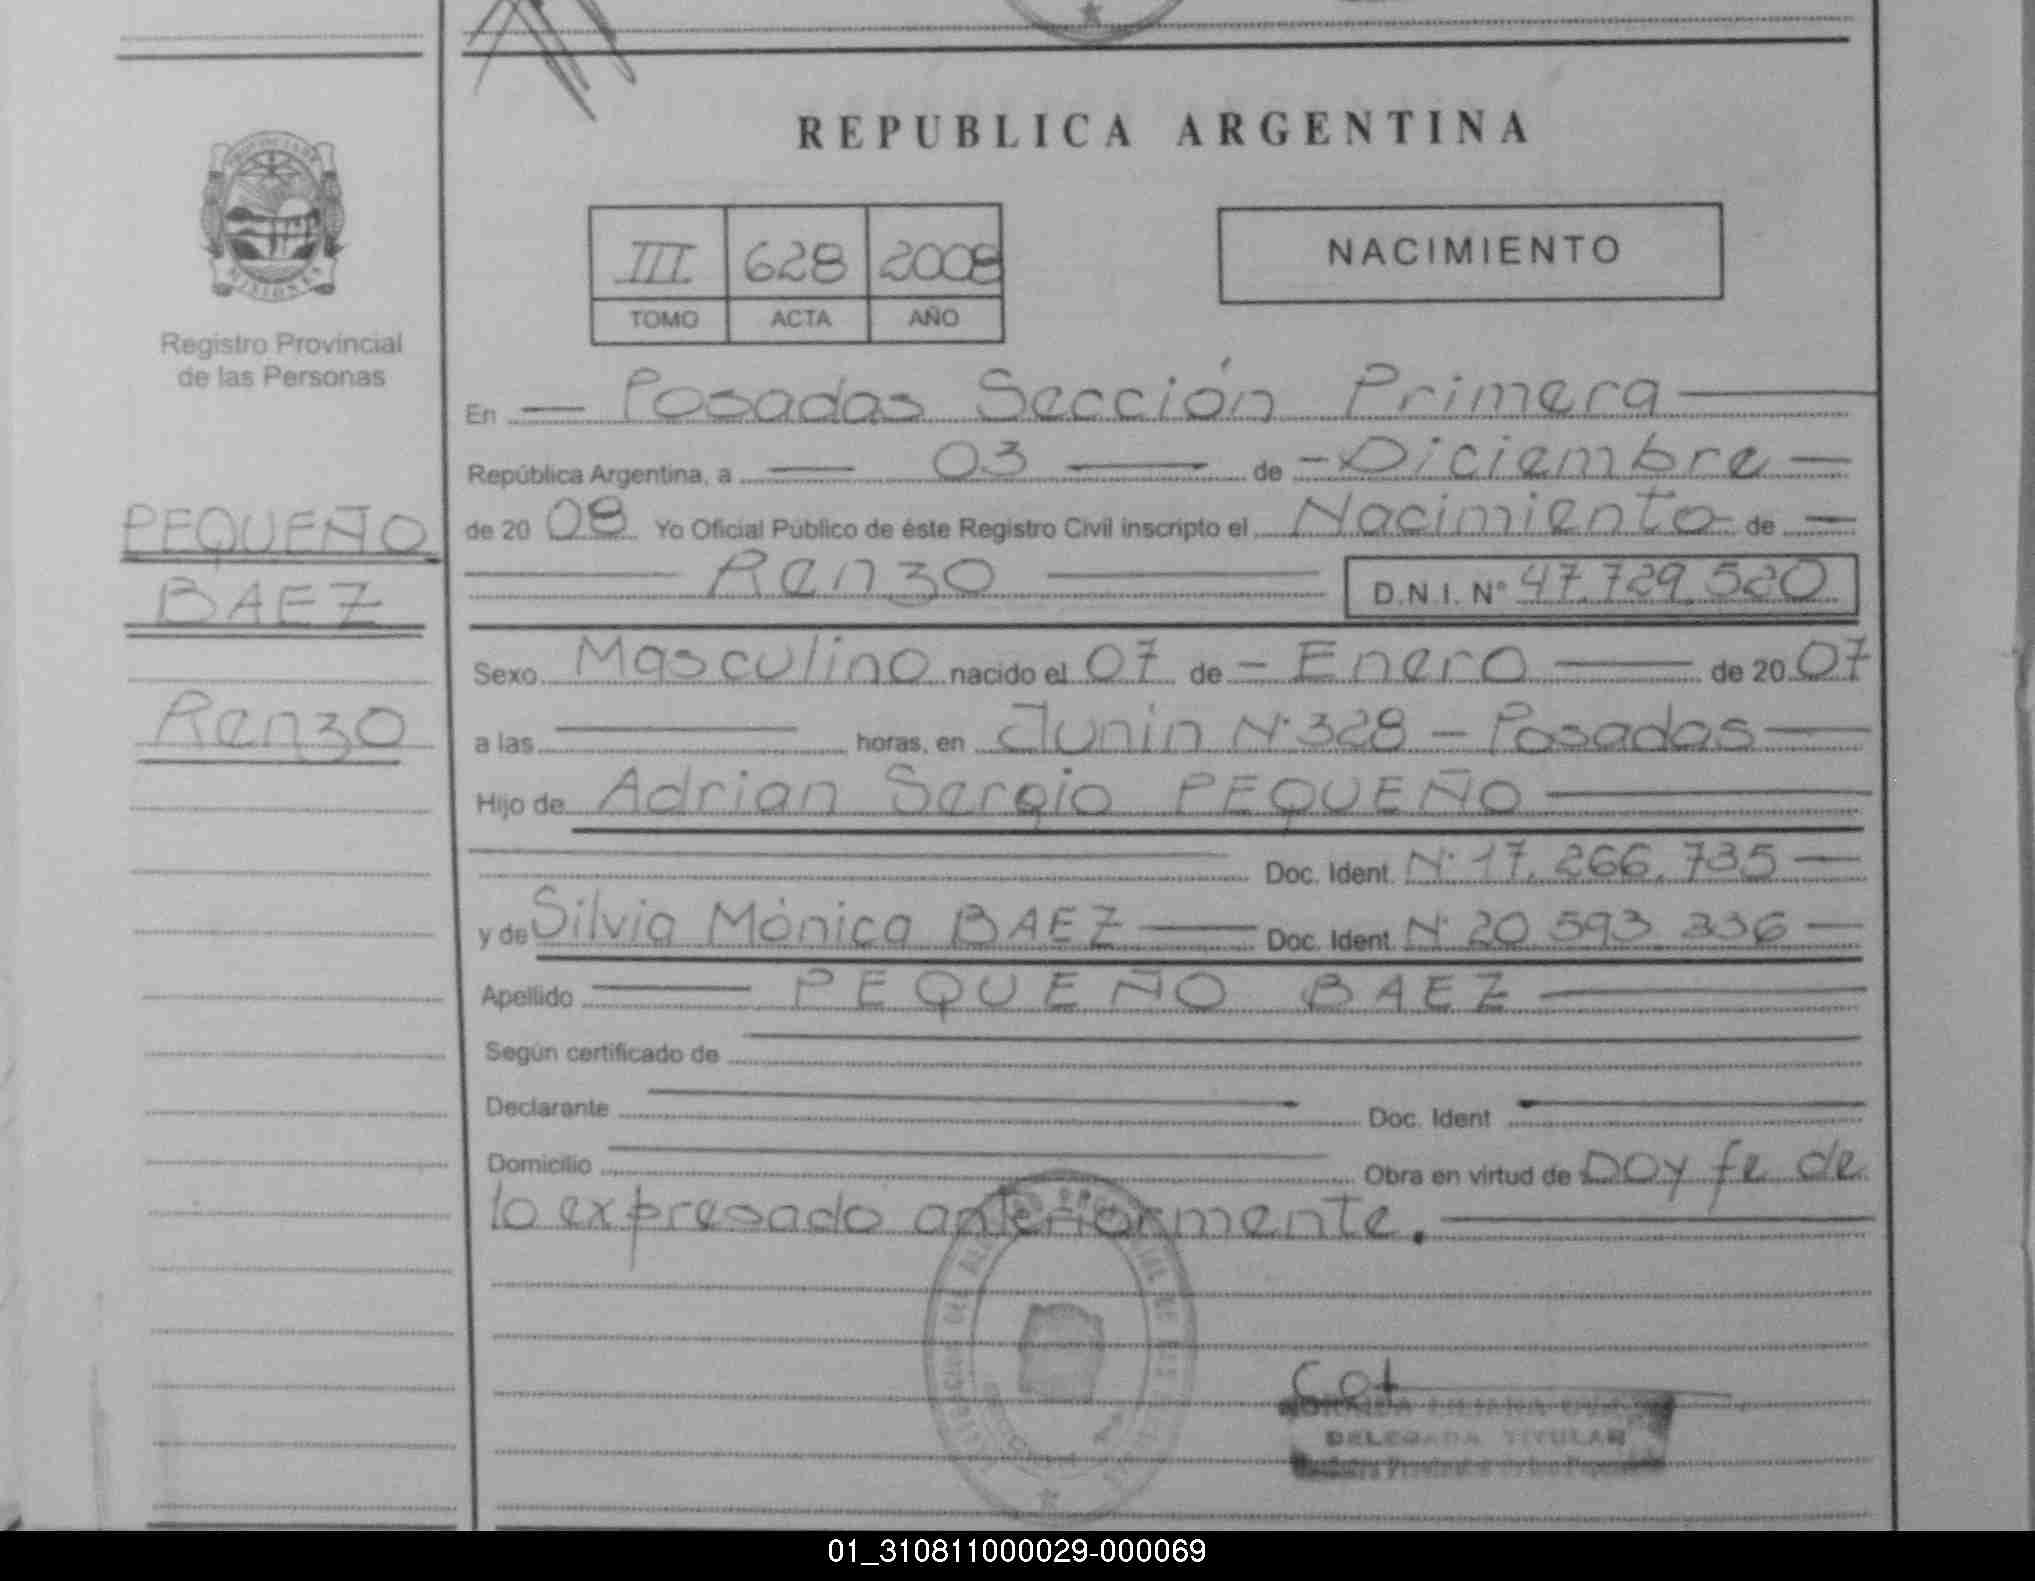 REPUBLICA ARGENTINA
III 628 2008
TOMO ACTA AÑO
NACIMIENTO
PROVINCIA DE
MISIONES
Registro Provincial
de las Personas
PEQUEÑO
BAEZ
Renzo
En Posadas Sección Primera
República Argentina, a 03 de Diciembre
de 20 08 Yo Oficial Público de éste Registro Civil inscripto el Nacimiento de
Renzo D.N.I. N° 47.729.520
Sexo Masculino nacido el 07 de Enero de 20 07
a las horas, en Junin N° 328 - Posadas
Hijo de Adrian Sergio PEQUEÑO
Doc. Ident. N° 17.266.735
y de Silvia Mónica BAEZ Doc. Ident N° 20.593.336
Apellido PEQUEÑO BAEZ
Según certificado de
Declarante Doc. Ident
Domicilio Obra en virtud de Doy fe de
lo expresado anteriormente.
LILIANA
DELEGADA TITULAR
01_310811000029-000069